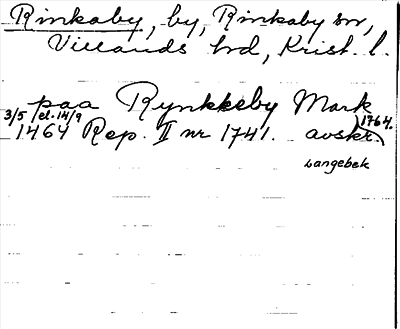 Rinkaby, by, Rinkaby sn,
Villands hd, Krist. l.
paa Rynkkeby Mark
3/5 el. 14/9
1464 Rep. II nr 1741. avskr. 1764.
Langebek